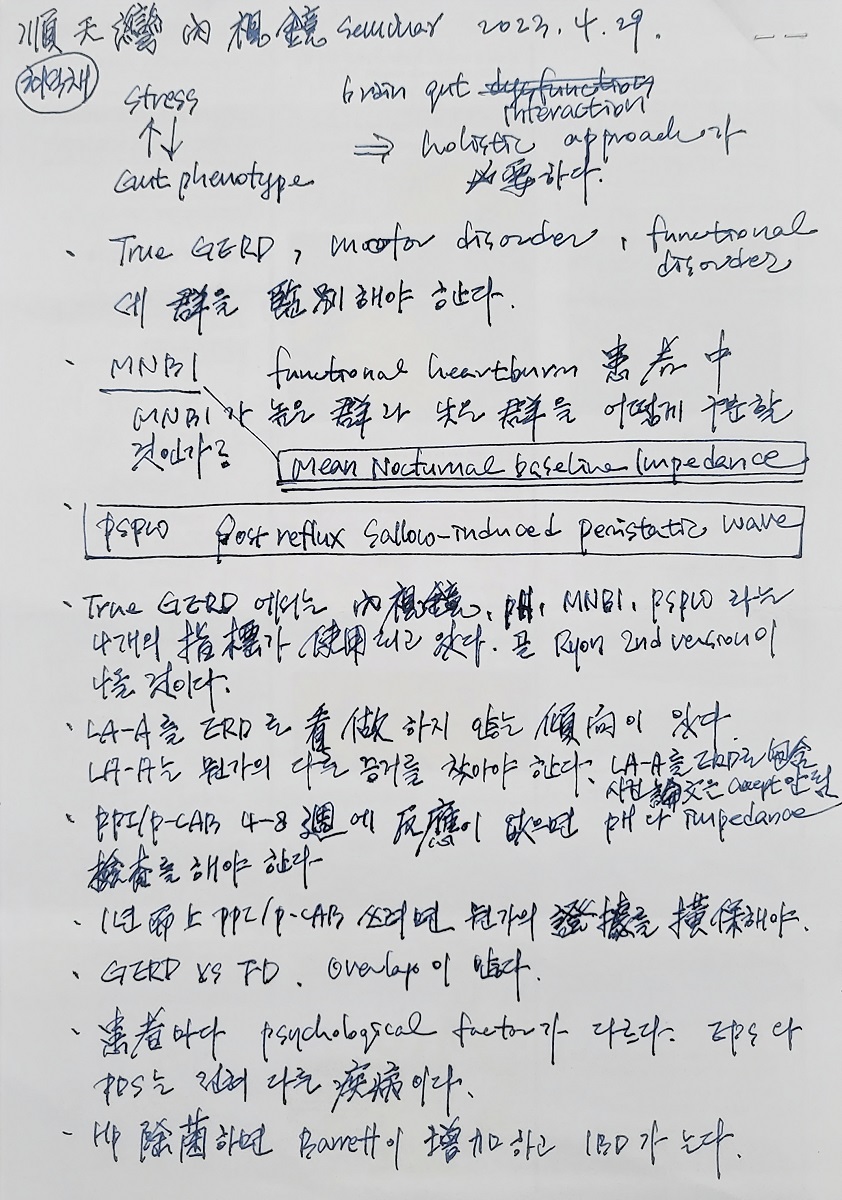 順天灣 內視鏡 seminar 2023.4.29.
최석채
stress brain gut dysfunction
interaction
↑↓ ⇒ holistic approach가
Gut phenotype 必要하다.
、 True GERD, mootor disorder, functional
disorder
세 群을 鑑別해야 한다.
、 MNBI functional heartburn 患者 中
MNBI가 높은 群과 낮은 群을 어떻게 구분할
것인가?
Mean Nocturnal baseline Impedance
、 PSPW Post reflux Sallow-induced peristatic wave
、 True GERD 에서는 內視鏡, pH, MNBI, PSPW 라는
4개의 指標가 使用되고 있다. 곧 Ryon 2nd version이
나올 것이다.
、 LA-A를 ERD로 看做하지 않는 傾向이 있다.
LA-A는 뭔가의 다른 증거를 찾아야 한다. LA-A를 ERD로 包含
시킨 論文은 accept 안 됨
、 PPI/P-CAB 4-8週에 反應이 없으면 pH나 impedance
檢査를 해야 한다
、 1년 而上 PPI/P-CAB 쓰려면 뭔가의 證據를 擴保해야.
、 GERD vs FD. Overlap이 많다.
、 患者마다 psychological factor가 다르다. EPS와
PDS는 전혀 다른 疾病이다.
、 HP 除菌하면 Barrett이 增加하고 IBD가 는다.